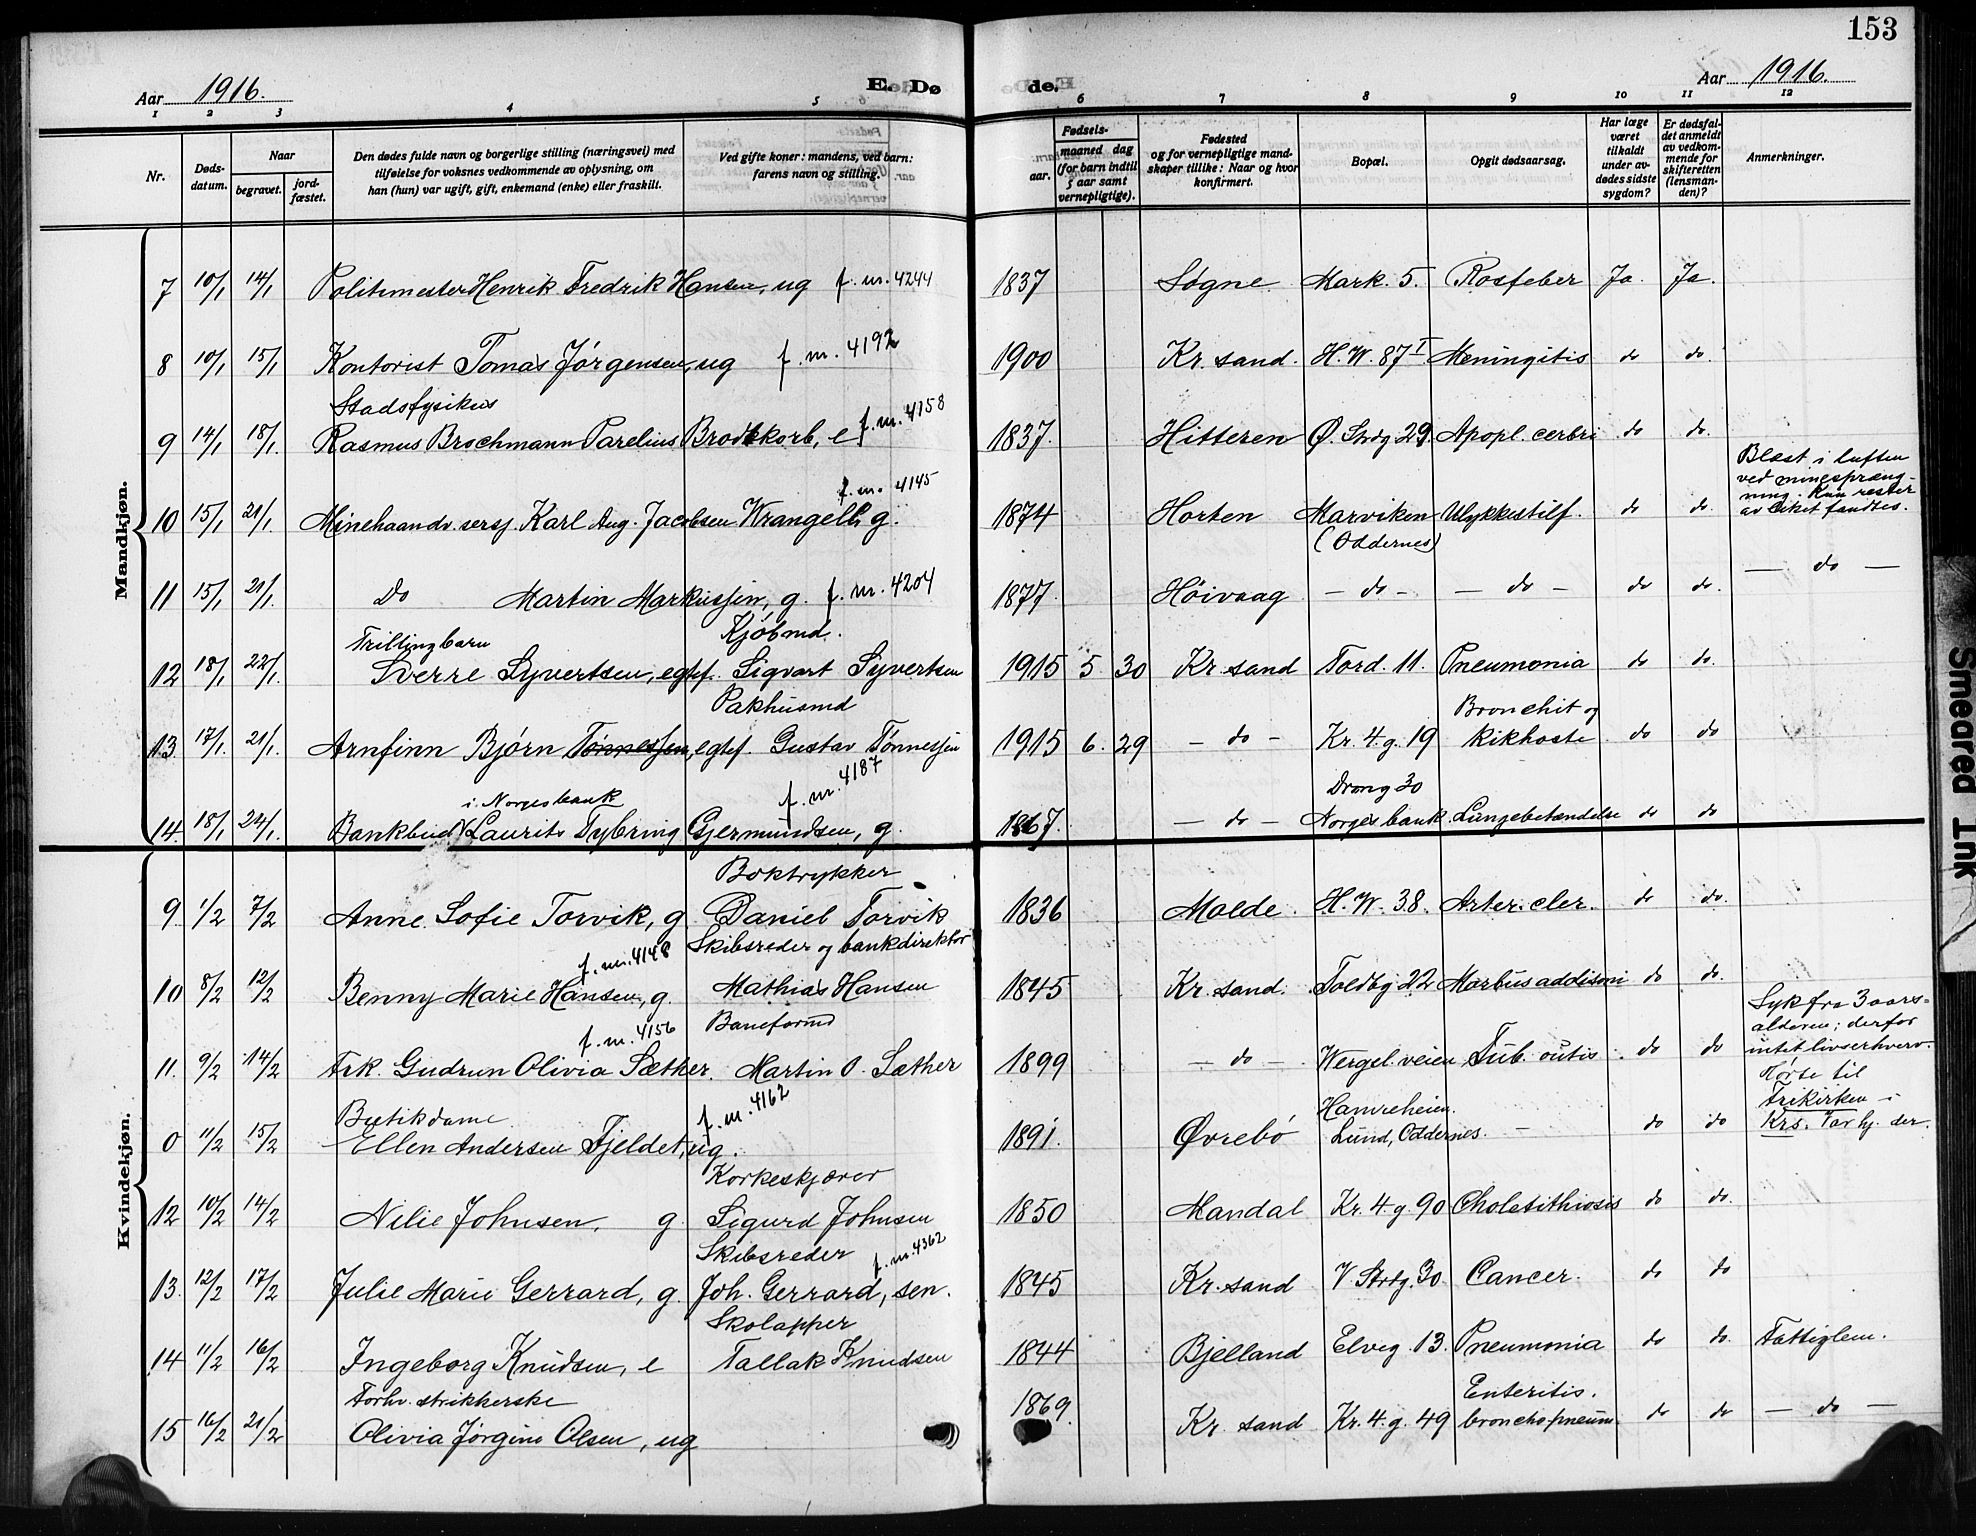 153
Aar 1916. E. Døde. Aar 1916.
1 2 3 4 5 6 7 8 9 10 11 12
Nr.
Døds-
datum.
Naar
begravet.
jord-
fæstet.
Den dødes fulde navn og borgerlige stilling (næringsvei) med
tilføielse for voksnes vedkommende av oplysning, om
han (hun) var ugift, gift, enkemand (enke) eller fraskilt.
Ved gifte koner: mandens, ved barn:
farens navn og stilling.
Fødsels-
aar.
maaned dag
(for barn indtil
5 aar samt
vernepligtige).
Fødested
og for vernepligtige mand-
skaper tillike: Naar og hvor
konfirmert.
Bopæl.
Opgit dødsaarsag.
Har læge
været
tilkaldt
under av-
dødes sidste
sygdom?
Er dødsfal-
det anmeldt
av vedkom-
mende for
skifteretten
(lensman-
den)?
Anmerkninger.
Mandkjøn.
7 10/1 14/1 Politimester Henrik Fredrik Hansen, ug f. nr. 4244 1837 Søgne Mark. 5. Rosfeber Ja. Ja.
8 10/1 15/1 Kontorist Tomas Jørgensen, ug f. nr. 4192 1900 Kr. sand. H. W. 87 I Meningitis do do.
Stadsfysikus
9 14/1 18/1 Rasmus Brochmann Parelius Brodtkorb, e f. nr. 4158 1837. Hitteren Ø. Strdg 29. Apopl. cerbri do do.
f. nr. 4145
10 15/1 21/1 Minehaandv. sersj. Karl Aug. Jacobsen Wrangell, g. 1874 Horten Marviken Ulykkestilf. do do.
(Oddernes)
Blæst i luften
ved minespræng-
ning. Kun rester
av liket fandtes.
11 15/1 21/1. Do Martin Markussen, g. f. nr. 4204 1877. Høivaag — do — — do — do do. — do —
Trillingbarn Kjøbmd.
12 18/1 22/1. Sverre Syvertsen, egtef. Sigvart Syvertsen 1915 5 30 Kr. sand Tord. 11. Pneumonia do do.
Pakhusmd Bronchit og
13. 17/1. 21/1. Arnfinn Bjørn Tønnessen, egtef. Gustav Tønnessen 1915 6. 29 — do — Kr. 4. g. 19 kikhoste do do
i Norges bank f. nr. 4187 Drong 30
14. 18/1 24/1. Bankbud Laurits Tybring Gjermundsen, g. 1867. — do — Norges bank Lungebetændelse do do
Kvindekjøn.
Boktrykker
9. 1/2 7/2 Anne Sofie Torvik, g. Daniel Torvik 1836 Molde. H. W. 38. Arter. cler. do do.
f. nr. 4148 Skibsreder og bankdirektør
10 8/2 12/2 Benny Marie Hansen, g. Mathias Hansen 1845 Kr. sand. Toldbg 22 Morbus addisoni do do.
f. nr. 4156 Baneformd
11. 9/2 14/2 Frk. Gudrun Olivia Sæther. Martin O. Sæther 1899 — do — Wergel. veien Tub. cutis do do
Syk fra 3 aars-
alderen; derfor
intet livserhverv.
Butikdame f. nr. 4162 Hamreheien.
0 11/2 15/2 Ellen Andersen Fjeldet, ug. 1891. Øvrebø Lund, Oddernes. — do do
Hørte til
Frikirken i
Krs. Var hj. der.
Korkeskjærer
12 10/2 14/2 Nilie Johnsen, g Sigurd Johnsen 1850 Mandal Kr. 4. g. 90 Cholelithiosis do do.
Skibsreder f. nr. 4362
13. 12/2 17/2 Julie Marie Gerrard, g. Joh. Gerrard, sen. 1845 Kr. sand V. Strdg. 30. Cancer. do do
Skolapper
14 11/2 16/2 Ingeborg Knudsen, e Tallak Knudsen 1844 Bjelland Elveg. 13. Pneumonia do do. Fattiglem.
Forhv. strikkerske Enteritis.
15 16/2 21/2 Olivia Jørgine Olsen, ug 1869. Kr. sand Kr. 4. g. 49 bronchopneum. do do — do —
Smeared Ink